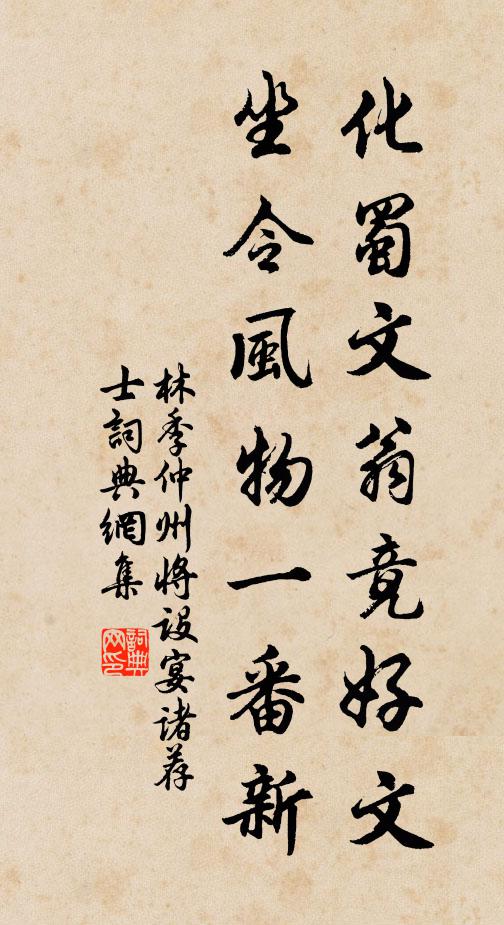 化蜀文翁竟好文
坐令風物一番新
林季仲州將設宴諸荐
士詞典網集
詞典網印